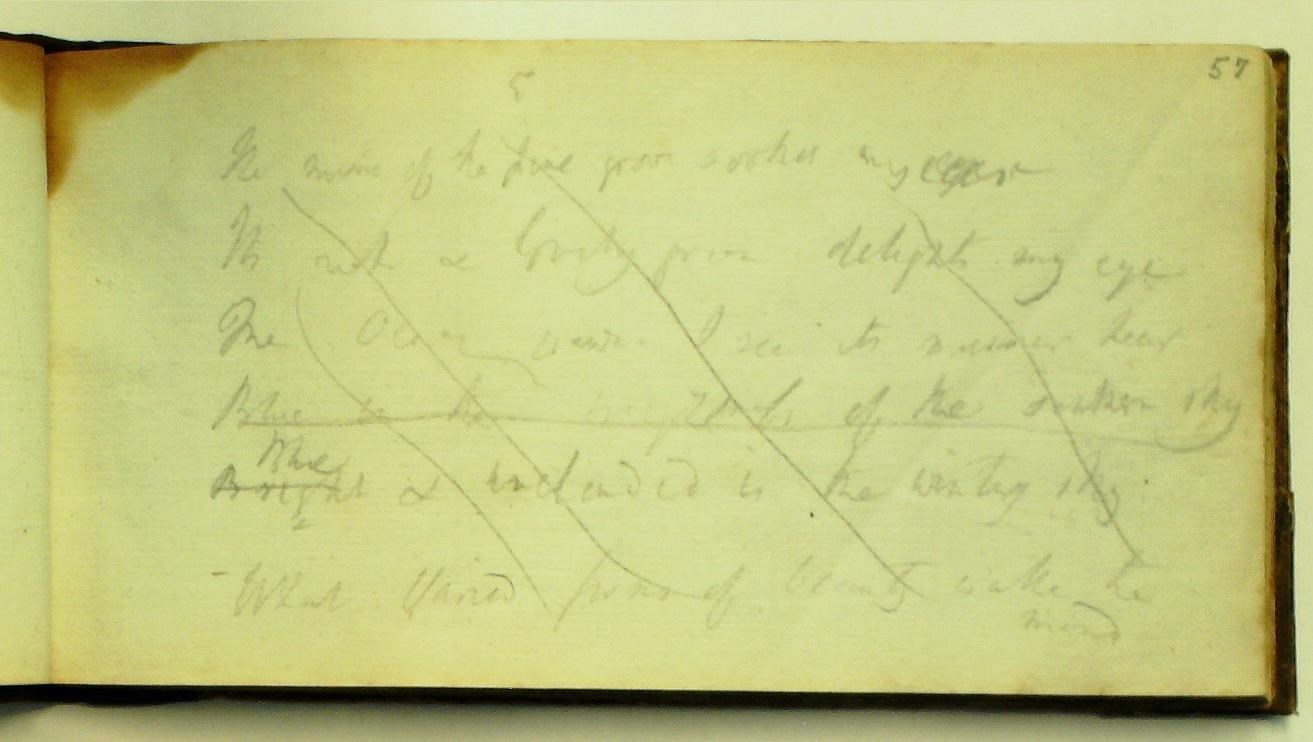 57
5
The music of the pine grove soothes my ear
Its & lovely green delights my eye
The Ocean waves I see its murmur hear
Blue is the of the southern sky
Blue
Bright & unclouded is the wintry sky
- What varied forms of beauty wake the
mind